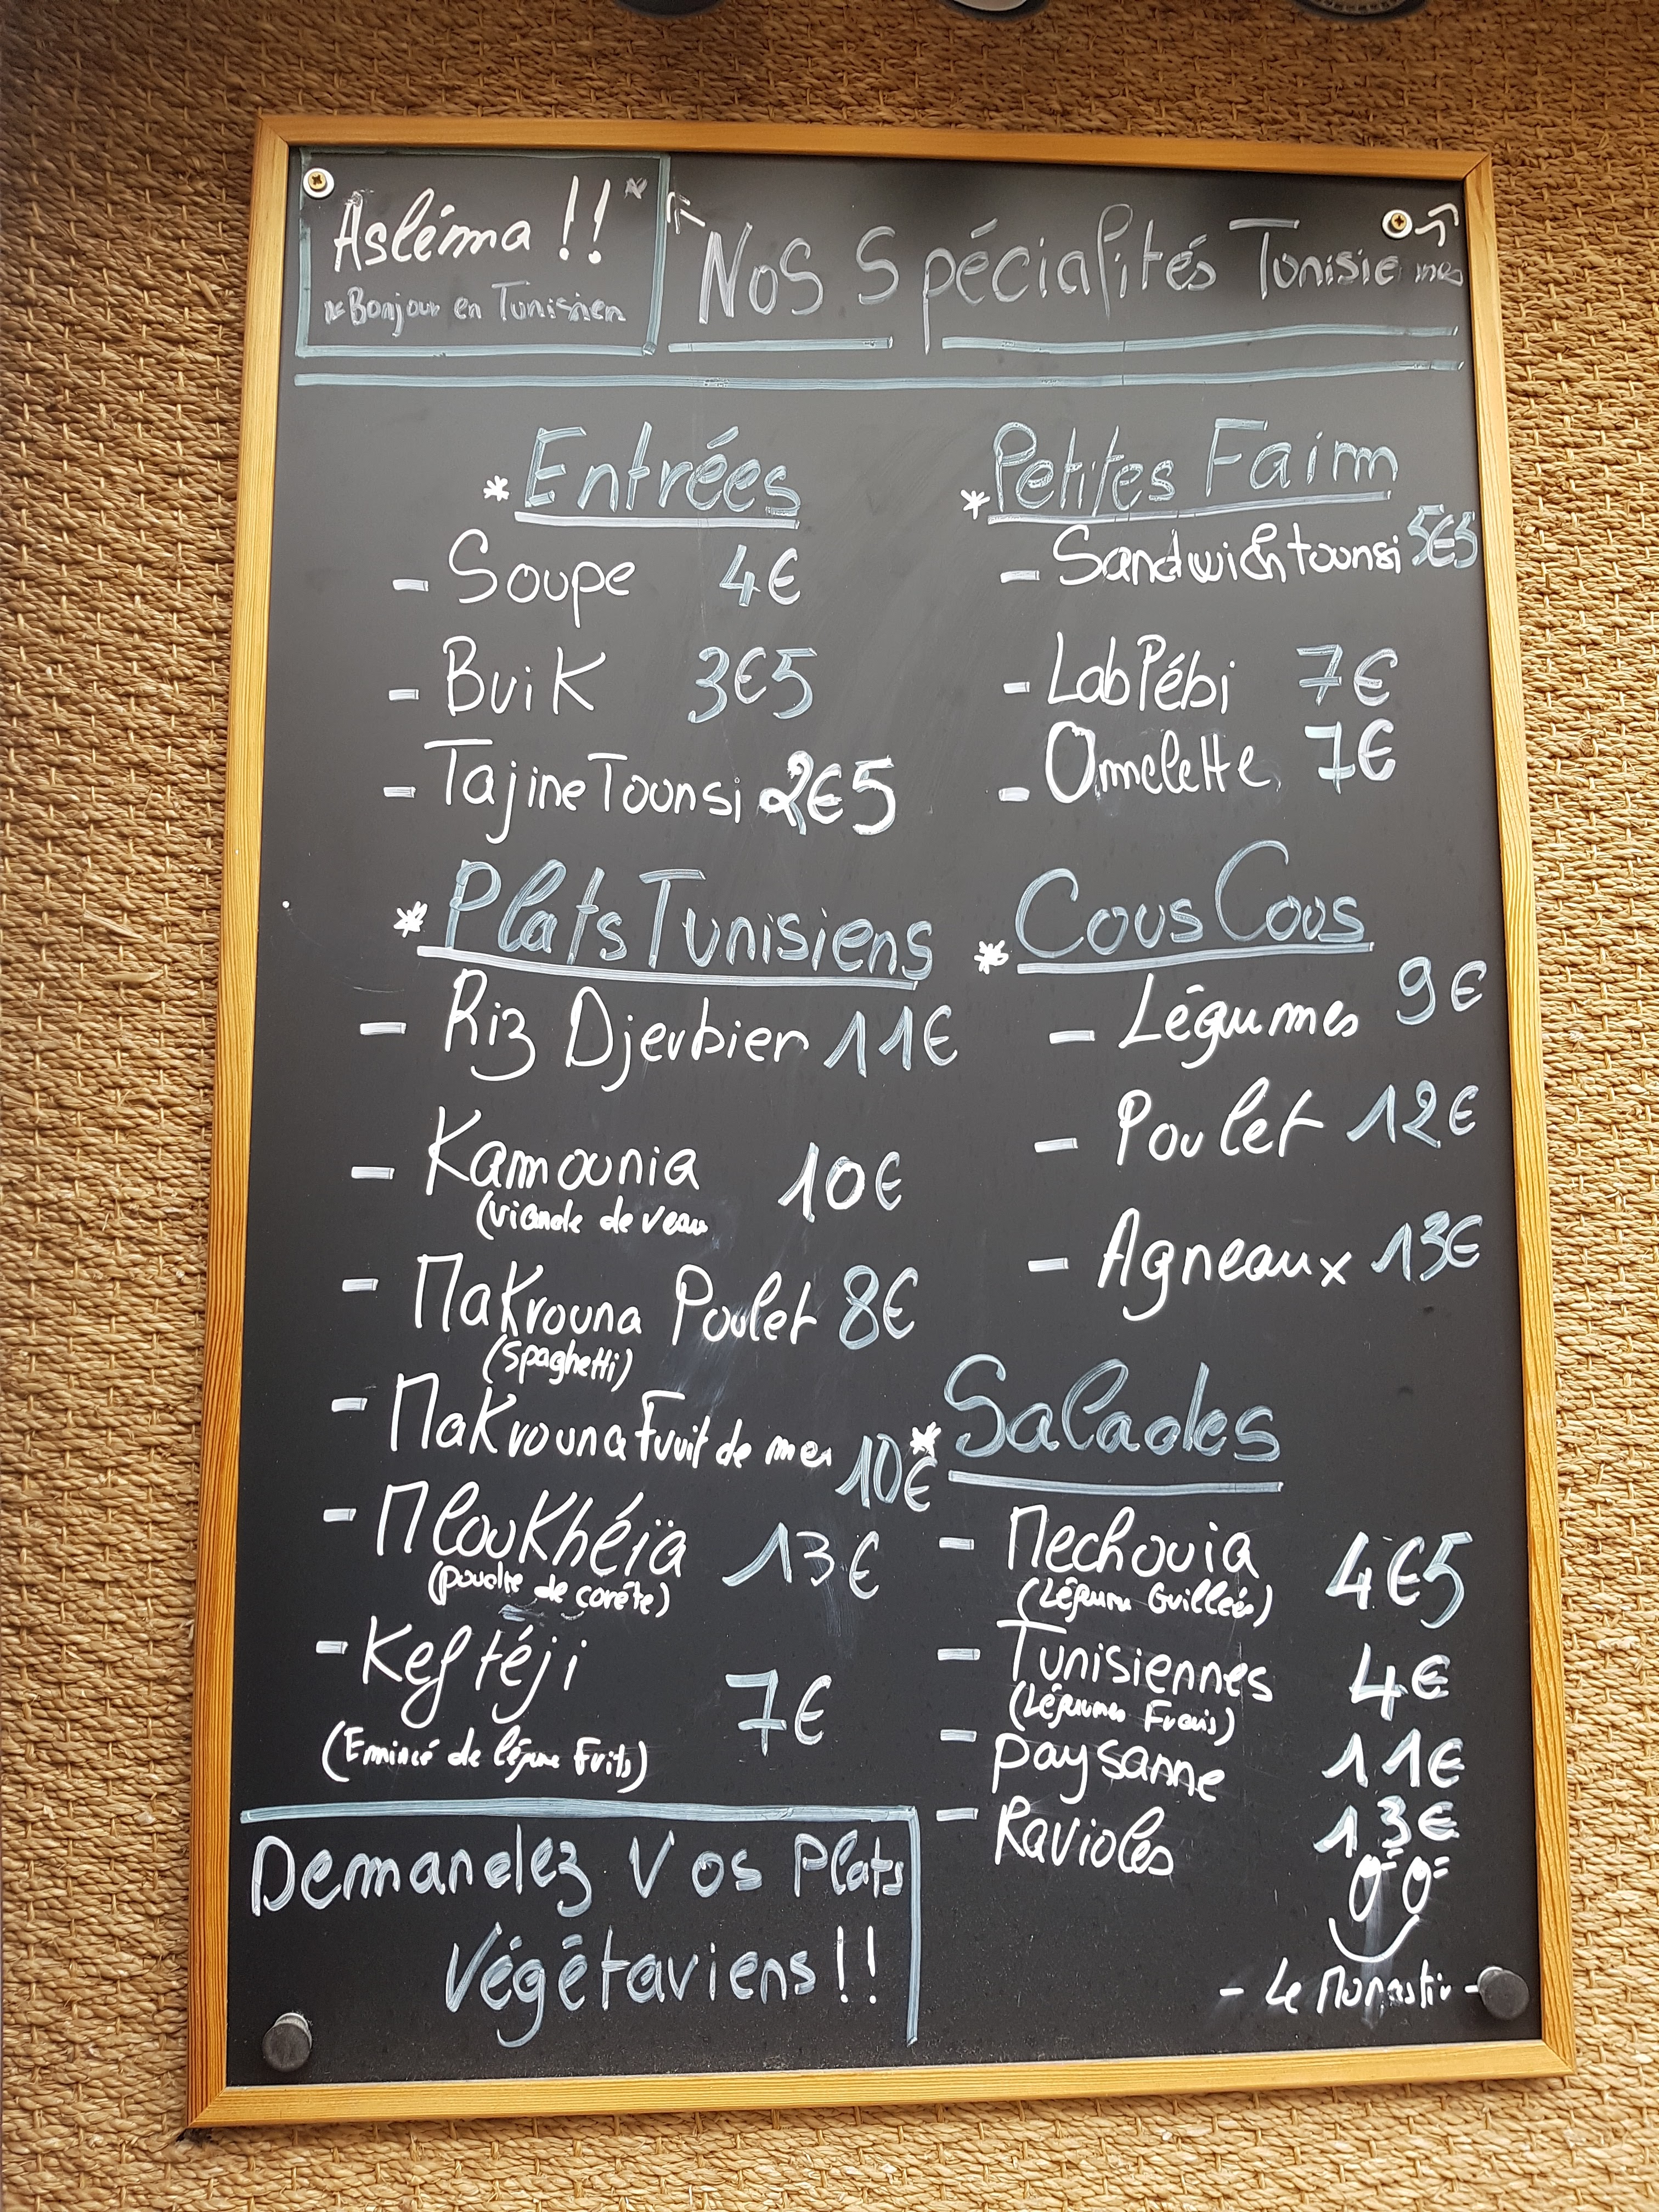 Asléma !!
*Bonjour en Tunisien
Nos Spécialités Tunisiennes
* Entrées
- Soupe 4€
- Brik 3€5
- Tajine Tounsi 2€5
* Petites Faim
- Sandwich tounsi 5€5
- Lablébi 7€
- Omelette 7€
* Plats Tunisiens
- Riz Djerbien 11€
- Kamounia 10€
(viande de veau
- Makrouna Poulet 8€
(spaghetti)
- Makrouna Fruit de mer 10€
- Mloukhéïa 13€
(poudre de corète)
- Keftéji
7€
(Emincé de légume Frits)
* Cous Cous
- Légumes 9€
- Poulet 12€
- Agneaux 13€
* Salades
- Mechouia 4€5
(Légume Grillés)
- Tunisiennes 4€
(Légumes Frais)
- paysanne 11€
- Ravioles 13€
Demandez Vos Plats
Végétariens !!
- Le Monastir -